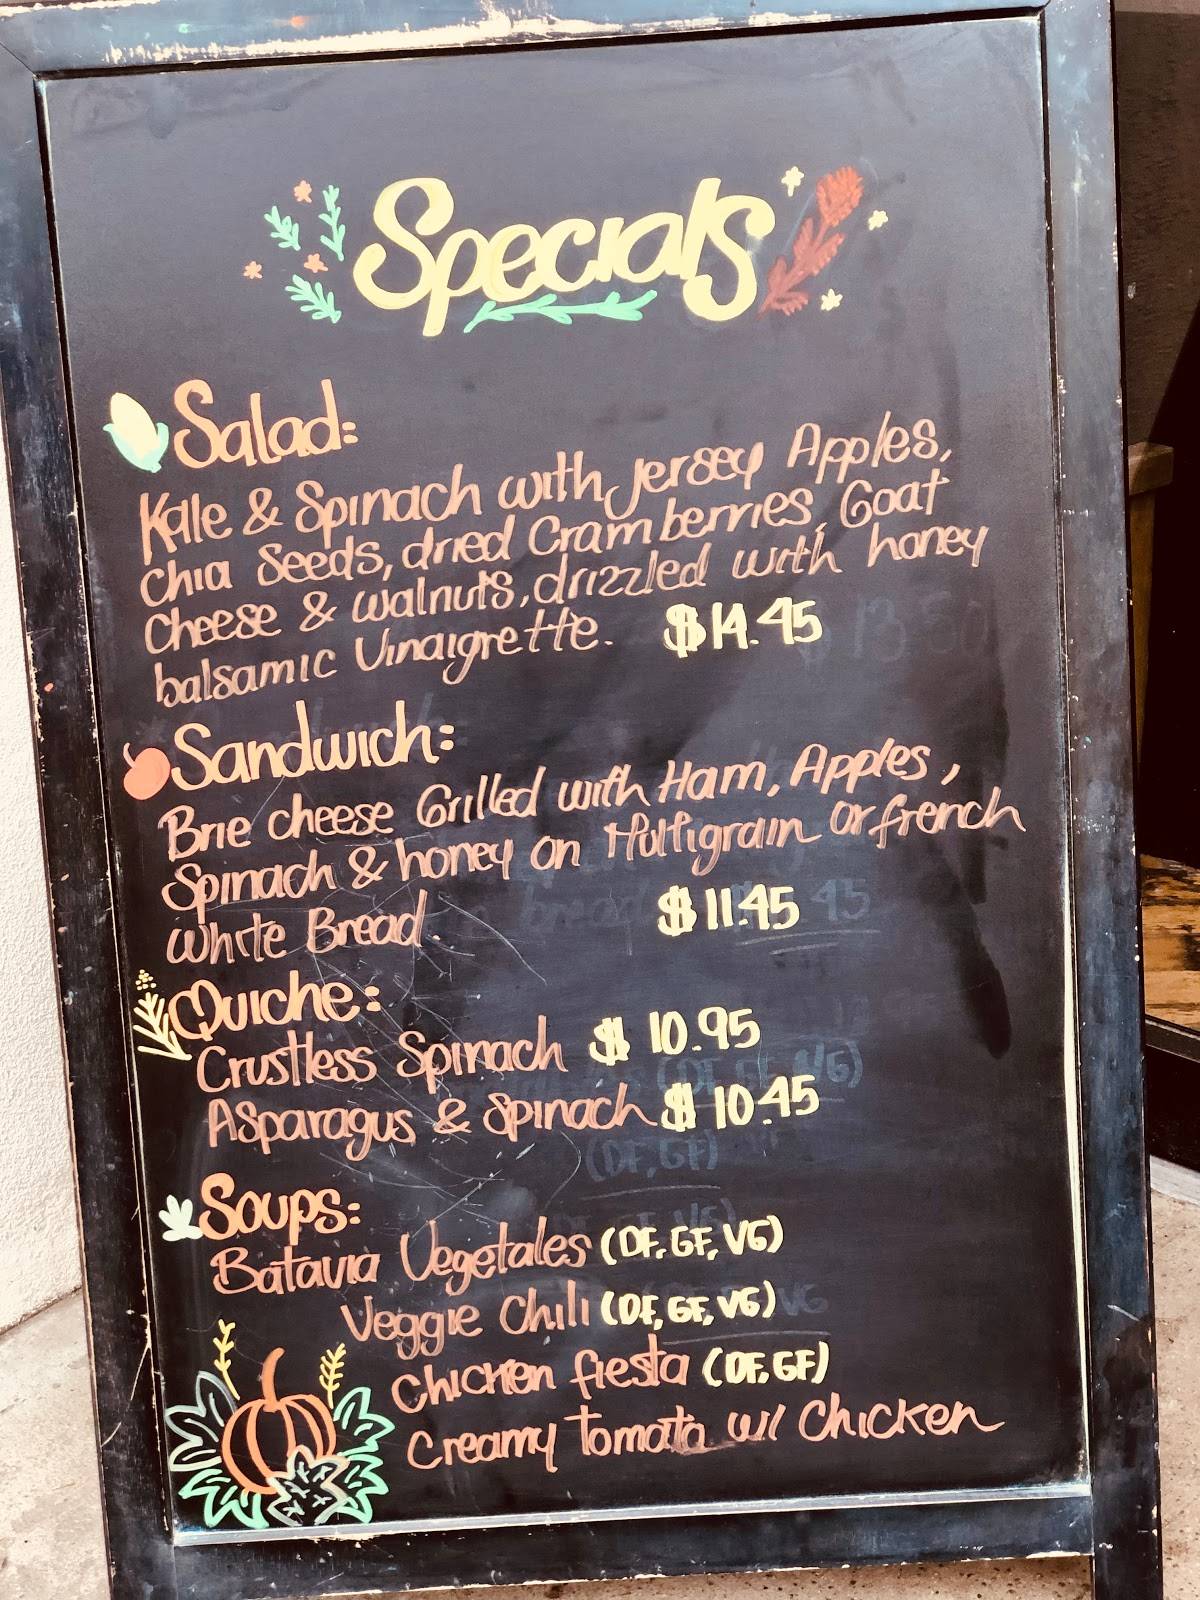 Specials
Salad:
Kale & Spinach with jersey Apples,
Chia Seeds, dried Cramberries, Goat
Cheese & walnuts, drizzled with honey
balsamic Vinaigrette. $14.45
Sandwich:
Brie cheese Grilled with Ham, Apples,
Spinach & honey on Multigrain or french
White Bread. $11.45
Quiche:
Crustless Spinach $10.95
Asparagus & Spinach $10.45
Soups:
Batavia Vegetales (DF, GF, VG)
Veggie Chili (DF, GF, VG)
Chicken fiesta (DF, GF)
Creamy tomato w/ Chicken